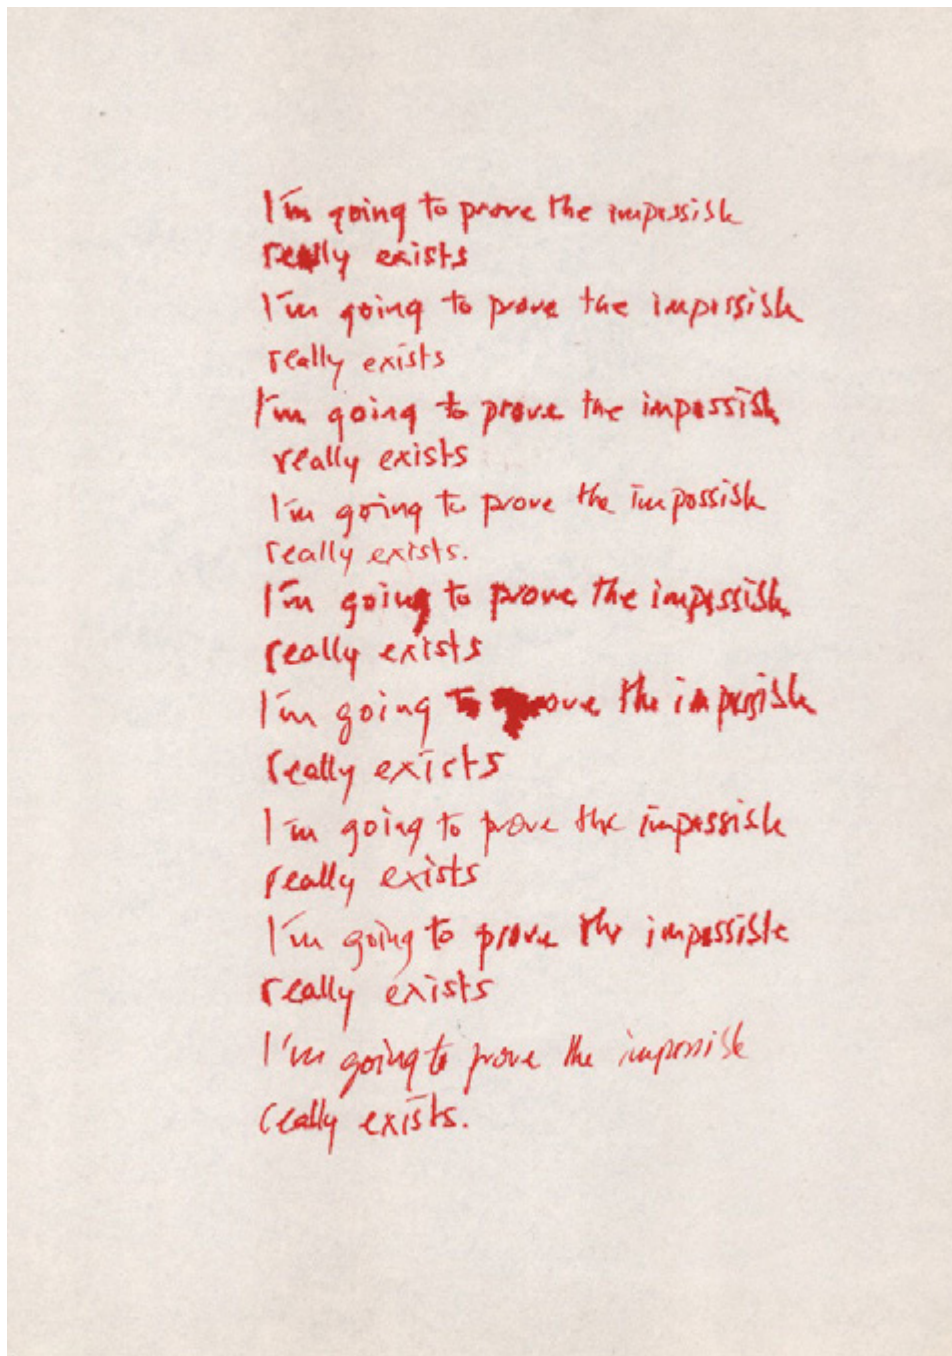 I'm going to prove the impossible
really exists
I'm going to prove the impossible
really exists
I'm going to prove the impossible
really exists
I'm going to prove the impossible
really exists.
I'm going to prove the impossible
really exists
I'm going to prove the impossible
really exists
I'm going to prove the impossible
really exists
I'm going to prove the impossible
really exists
I'm going to prove the impossible
really exists.